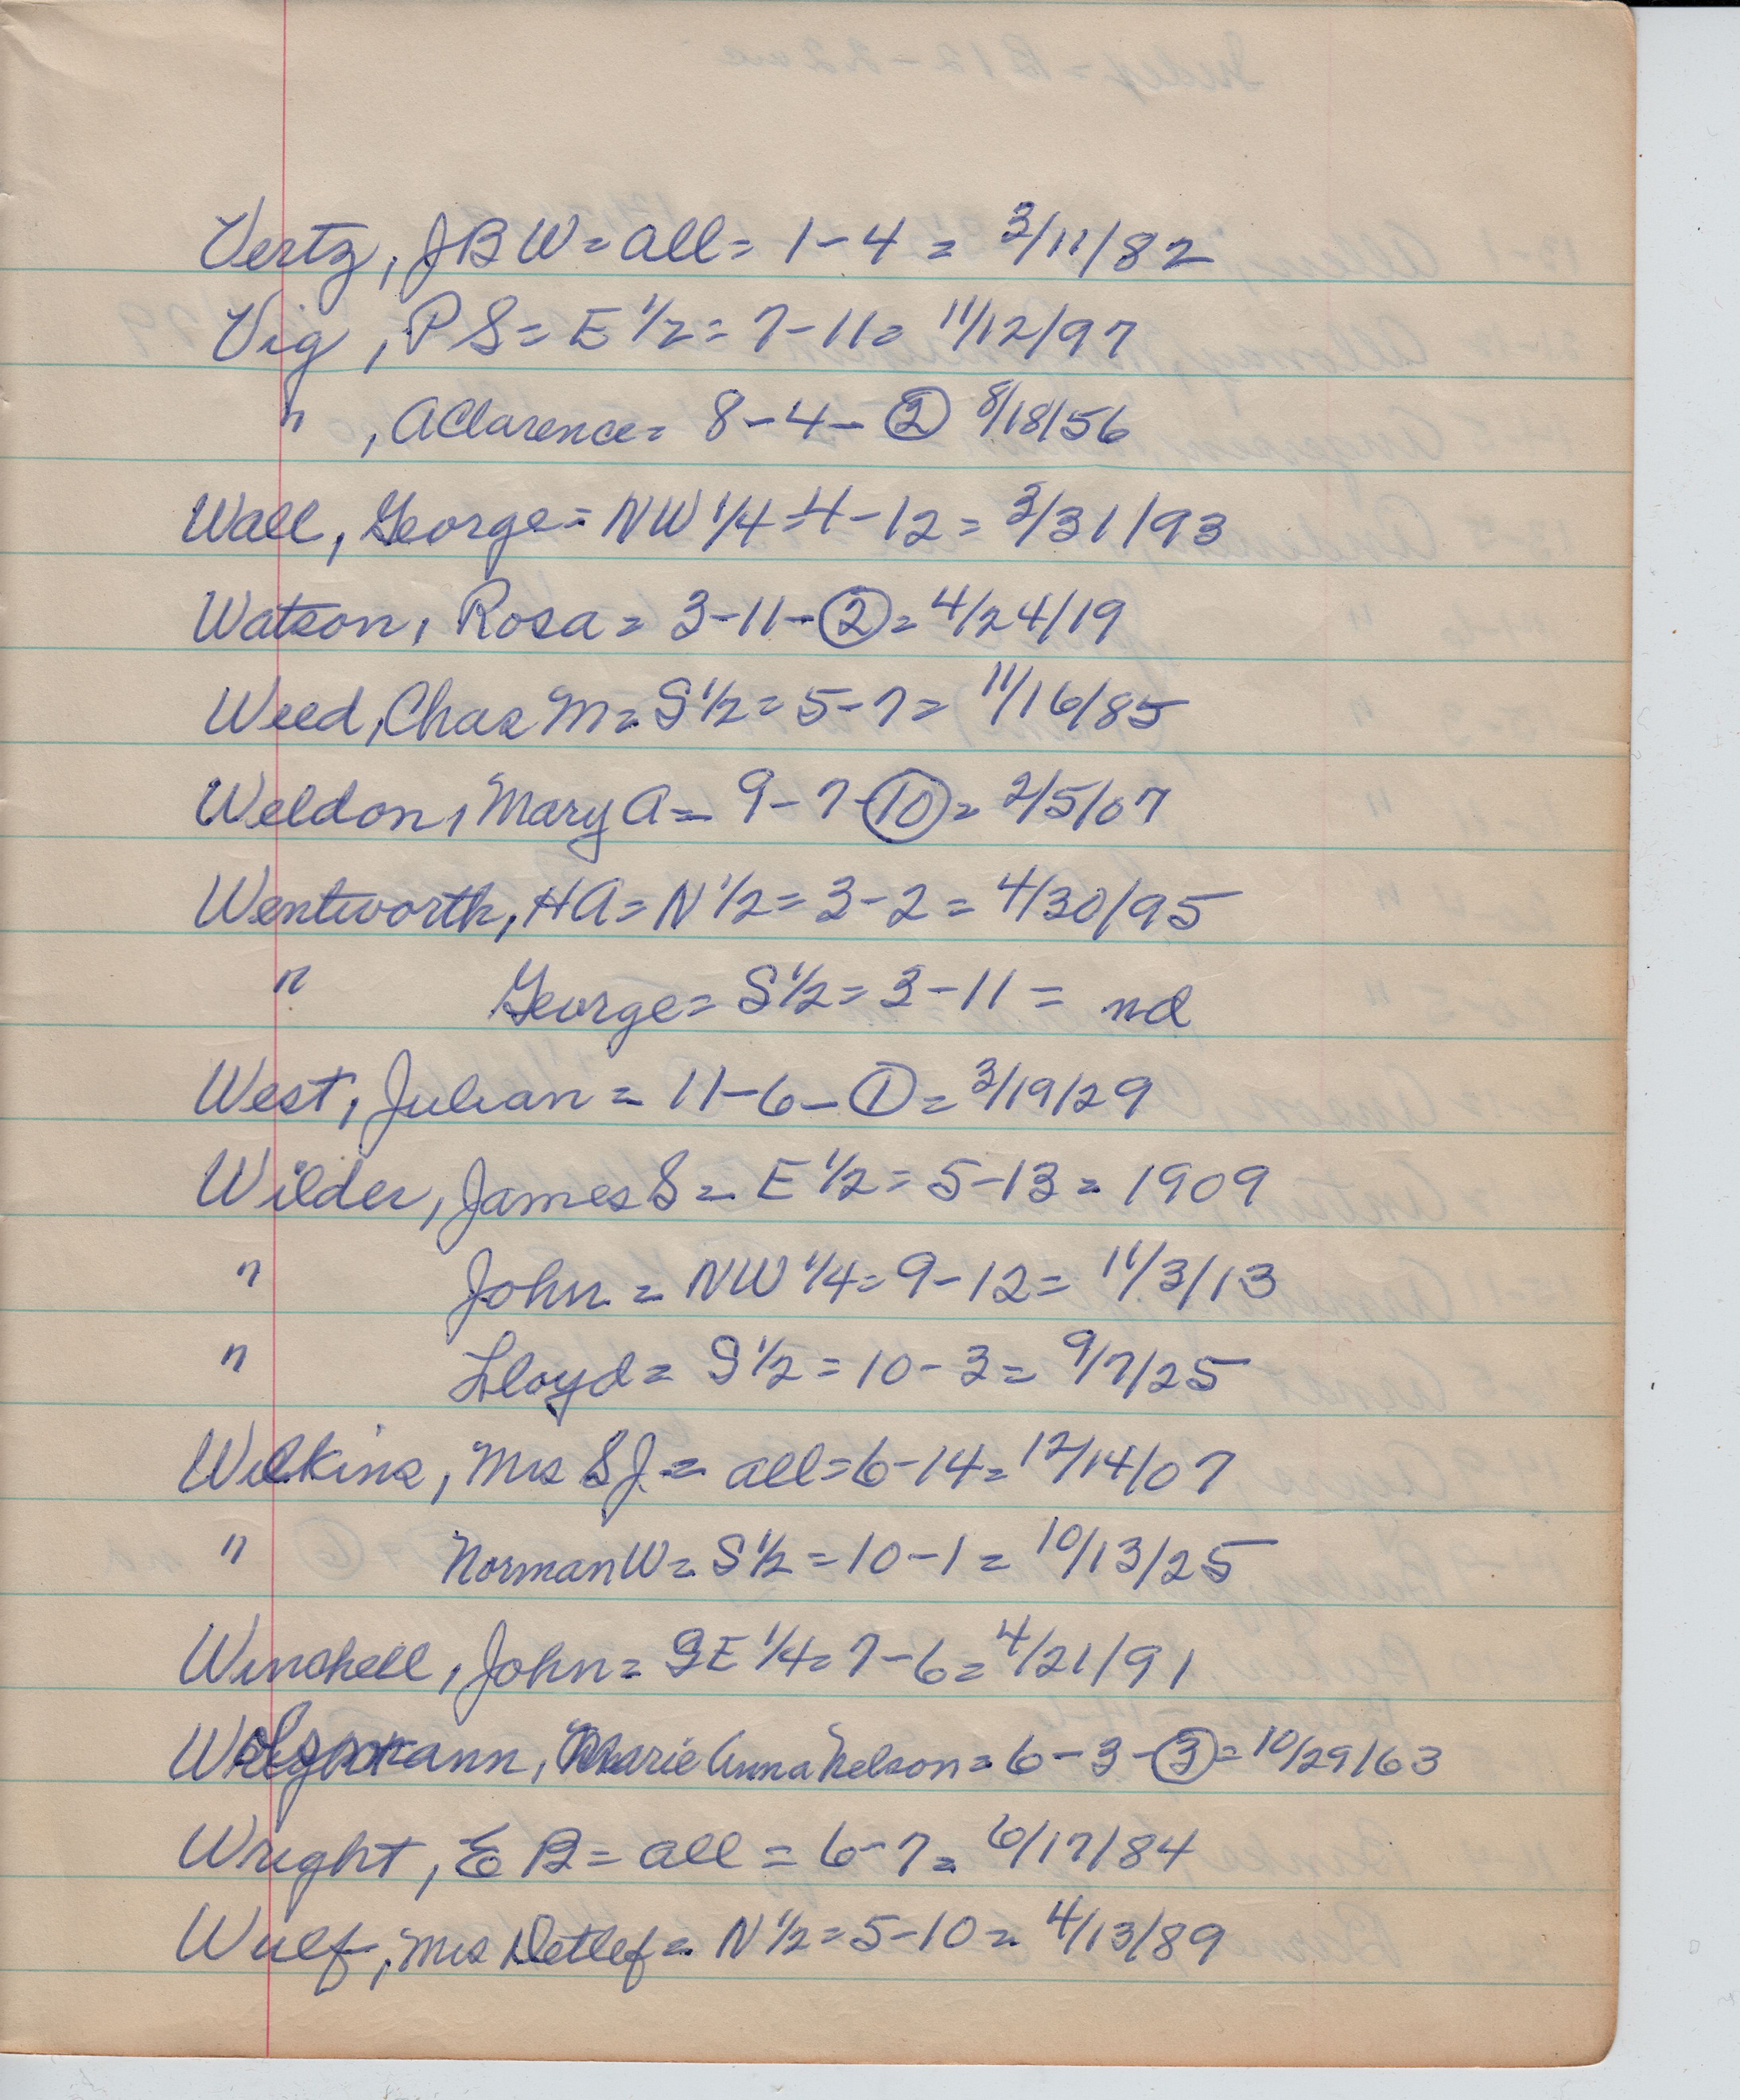 Vertz, JBW = all = 1-4 = 3/11/82
Vig, PS = E 1/2 = 7-11 = 11/12/97
" , AClarence = 8-4-② 8/18/56
Wall, George = NW 1/4 = 4-12 = 3/31/93
Watson, Rosa = 3-11-② = 4/24/19
Weed, Chas M = S 1/2 = 5-7 = 11/16/85
Weldon, Mary A = 9-7-⑩ = 2/5/07
Wentworth, HA = N 1/2 = 3-2 = 4/30/95
" George = S 1/2 = 3-11 = nd
West, Julian = 11-6-① = 3/19/29
Wilder, James S = E 1/2 = 5-13 = 1909
" John = NW 1/4 = 9-12 = 11/3/13
" Lloyd = S 1/2 = 10-3 = 9/7/25
Wilkins, Mrs S J. = all = 6-14 = 12/14/07
" Norman W = S 1/2 = 10-1 = 10/13/25
Winchell, John = SE 1/4 = 7-6 = 4/21/91
Marie Anna Nelson = 6-3-③ = 10/29/63
Wright, E B = all = 6-7 = 6/17/84
Wulf, Mrs Detlef = N 1/2 = 5-10 = 4/13/89